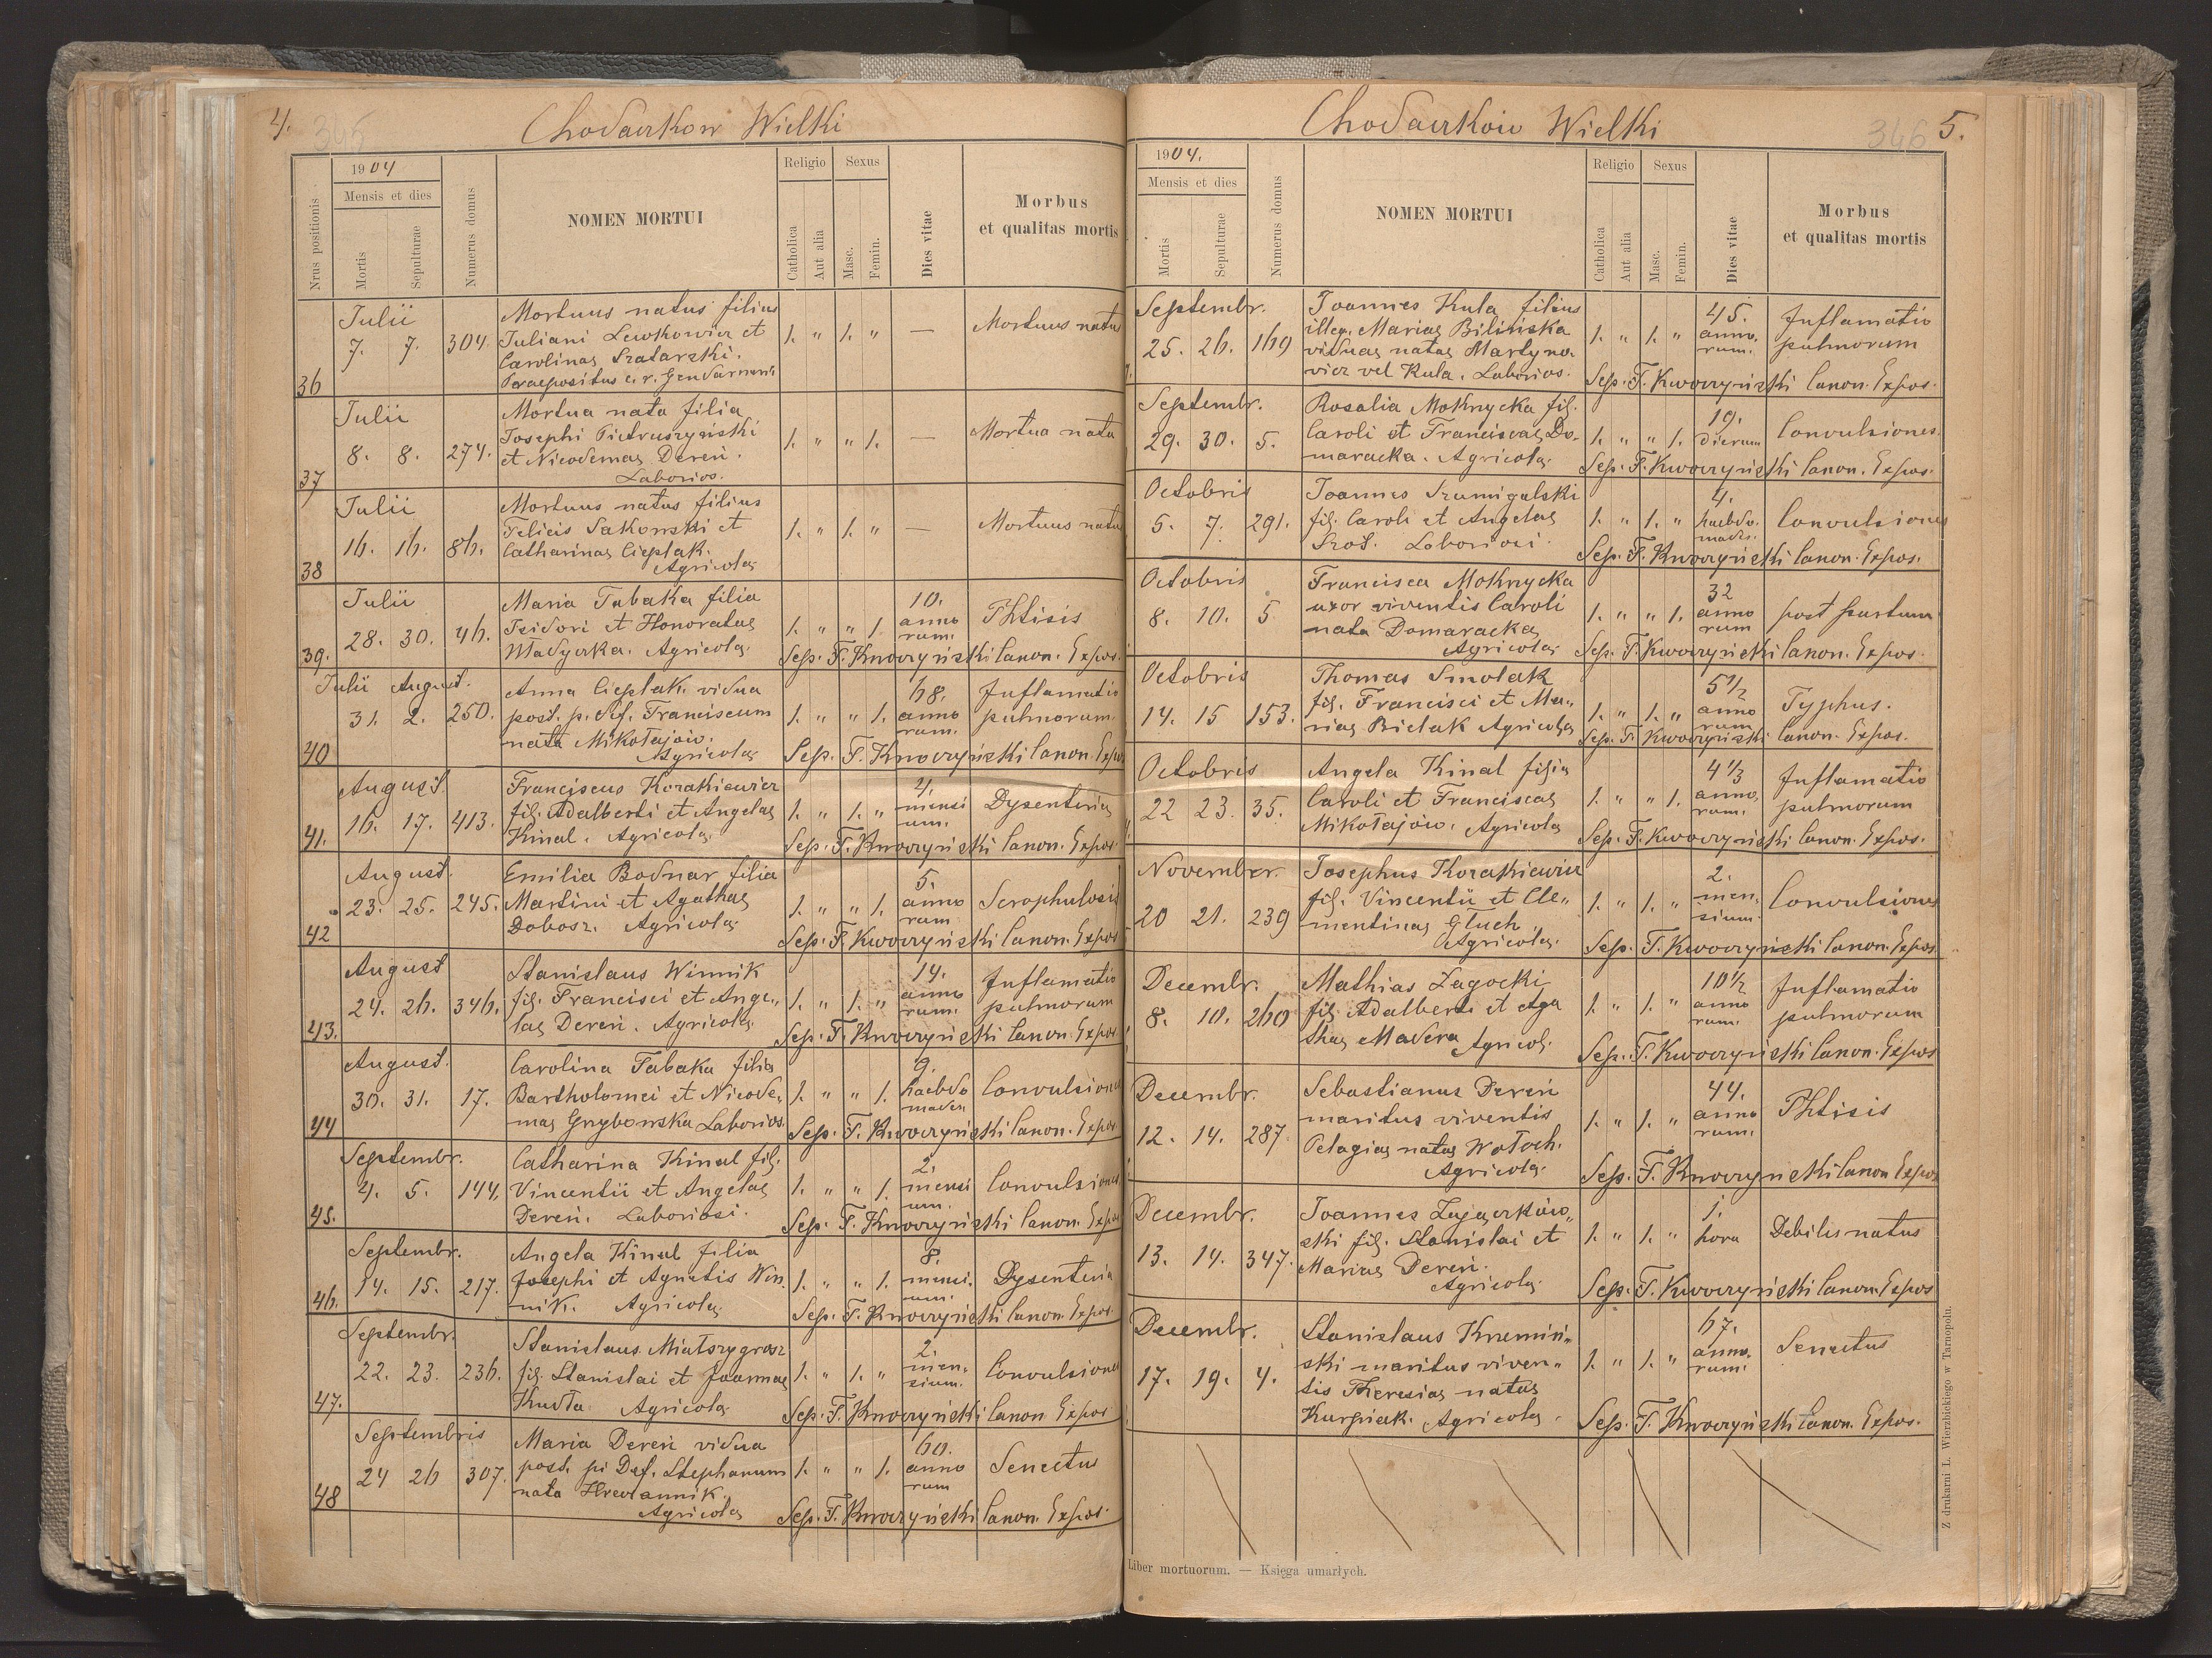 4.
365
Chodaczkow Wielki
1904
Religio
Sexus
Mensis et dies
Nrus positionis
Mortis
Sepulturae
Numerus domus
NOMEN MORTUI
Catholica
Aut alia
Masc.
Femin.
Dies vitae
Morbus
et qualitas mortis
Julii
Mortuus natus filius
7. 7. 304. Juliani Lewkowicz et 1. " 1. " — Mortuus natus
Carolinae Szatarski.
36 Praepositus c. r. Gendarmeri
Julii
Mortua nata filia
Josephi Pietruszyński
8. 8. 274. et Nicodemae Dereń. 1. " " 1. — Mortua nata
37 Laborios.
Julii
Mortuus natus filius
Felicis Sakowski et
16. 16. 86. Catharinae Cieplak. 1. " 1. " — Mortuus natus
38 Agricolae
Julii
Maria Tabaka filia 10.
28. 30. 46. Isidori et Honoratae 1. " " 1. anno Phtisis
rum.
39. Władyczka. Agricolae Sep. F. Kwoczyński Canon. Expos.
Julii August.
Anna Cieplak vidua 68. Inflamatio
31. 2. 250. post. p. def. Franciscum 1. " " 1. anno pulmorum.
nata Mikołajów. rum.
40 Agricolae Sep. F. Kwoczyński Canon. Expos
August.
Franciscus Korakiewicz 4.
16. 17. 413. fil. Adalberti et Angelae 1. " 1. " mensi Dysenteria
um.
41. Kinal. Agricolae Sep. F. Kwoczyński Canon. Expos.
August.
Emilia Bodnar filia 5.
23. 25. 245. Martini et Agathae 1. " " 1. anno Scrophulosis
rum
42 Dobosz. Agricolae Sep. F. Kwoczyński Canon. Expos
August
Stanislaus Winnik 14. Inflamatio
24. 26. 346. fil. Francisci et Ange„ 1. " 1. " anno pulmorum
rum.
43. lae Dereń. Agricolae Sep. F. Kwoczyński Canon. Expos
August.
Carolina Tabaka filia 9.
30. 31. 17. Bartholomei et Nicode„ 1. " " 1. haebdo Convulsiones
maden
44 mae Grzybowska Laborios. Sep. F. Kwoczyński Canon. Expos
Septembr.
Catharina Kinal fil. 2.
4. 5. 144. Vincentii et Angelae 1. " " 1. mensi Convulsiones
um.
45. Dereń. Laboriosi. Sep. F. Kwoczyński Canon. Expos
Septembr.
Angela Kinal filia 8.
14. 15. 217. Josephi et Agnetis Win 1. " " 1. mensi. Dysenteria
um.
46. nik. Agricolae Sep. F. Kwoczyński Canon. Expos.
Septembr.
Stanislaus Miałszygrosz 2.
22. 23. 236. fil. Stanislai et Joannae 1. " 1. " men= Convulsiones
sium.
47. Kudła. Agricolae Sep. F. Kwoczyński Canon. Expos
Septembris
Maria Dereń vidua 60.
24 26 307. post. p. Def. Stephanum 1. " " 1. anno Senectus
nata Hrewiannik. rum
48 Agricolae Sep. F. Kwoczyński Canon. Expos.
Chodaczkow Wielki
366
5.
1904.
Religio
Sexus
Mensis et dies
Mortis
Sepulturae
Numerus domus
NOMEN MORTUI
Catholica
Aut alia
Masc.
Femin.
Dies vitae
Morbus
et qualitas mortis
Septembr.
Joannes Kula filius 45. Inflamatio
25. 26. 169 illeg. Mariae Bilińska 1. " 1. " anno. pulmorum
viduae natae Martyno= rum.
vicz vel Kula. Laborios. Sep. F. Kwoczyński Canon. Expos.
Septembr.
Rosalia Mokrzycka fil. 19.
29. 30. 5. Caroli et Franciscae Do= 1. " " 1. dierum Convulsiones.
maracka. Agricolae Sep. F. Kwoczyński Canon. Expos.
Octobris
Joannes Szumigalski 4.
5. 7. 291. fil. Caroli et Angelae 1. " 1. " haebdo. Convulsiones
mades.
Szot. Laboriosi. Sep. F. Kwoczyński Canon. Expos.
Octobris
Francisca Mokrzycka 32
8. 10. 5 uxor viventis Caroli 1. " " 1. anno post partum
nata Domaracka rum
Agricolae Sep. F. Kwoczyński Canon. Expos.
Octobris
Thomas Smolak 5 1/2
14. 15 153. fil. Francisci et Ma„ 1. " 1. " anno Typhus.
rum
riae Bielak Agricolae Sep. F. Kwoczyński Canon. Expos.
Octobris
Angela Kinal filia 4 1/3 Inflamatio
22 23. 35. Caroli et Franciscae 1. " " 1. anno, pulmorum
rum.
Mikołajów. Agricolae Sep. F. Kwoczyński Canon. Expos.
November.
Josephus Korakiewicz 2.
20 21. 239 fil. Vincentii et Cle„ 1. " 1. " men= Convulsiones
mentinae Głuch. sium.
Agricolae. Sep. F. Kwoczyński Canon. Expos
Decembr.
Mathias Zagocki 10 1/2 Inflamatio
8. 10. 260 fil. Adalberti et Aga 1. " 1. " anno pulmorum
rum.
thae Madera Agricol. Sep. F. Kwoczyński Canon. Expos
Decembr.
Sebastianus Dereń 44.
maritus viventis 1. " 1. " anno Phtisis
12. 14. 287. Pelagiae natae Wołoch. rum.
Agricolae. Sep. F. Kwoczyński Canon Expos
Decembr.
Joannes Zajączków„ 1.
13. 14. 347. ski fil. Stanislai et 1. " 1. " hora Debilis natus
Mariae Dereń.
Agricolae Sep. F. Kwoczyński Canon. Expos
Decembr.
Stanislaus Krzemiń„ 67.
17. 19. 4. ski maritus viven„ 1. " 1. " anno. Senectus
tis Theresiae natae rum.
Kurpiak. Agricolae. Sep. F. Kwoczyński Canon. Expos.
Liber mortuorum. — Księga umarłych.
Z drukarni L. Wierzbickiego w Tarnopolu.